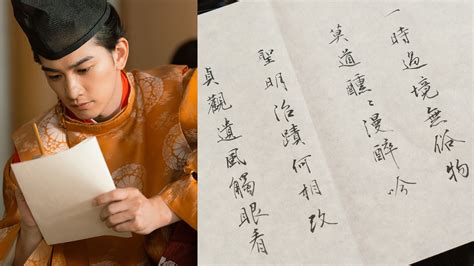 一時過境無俗物
莫道醺々漫醉吟
聖明治蹟何相改
貞觀遺風觸眼看